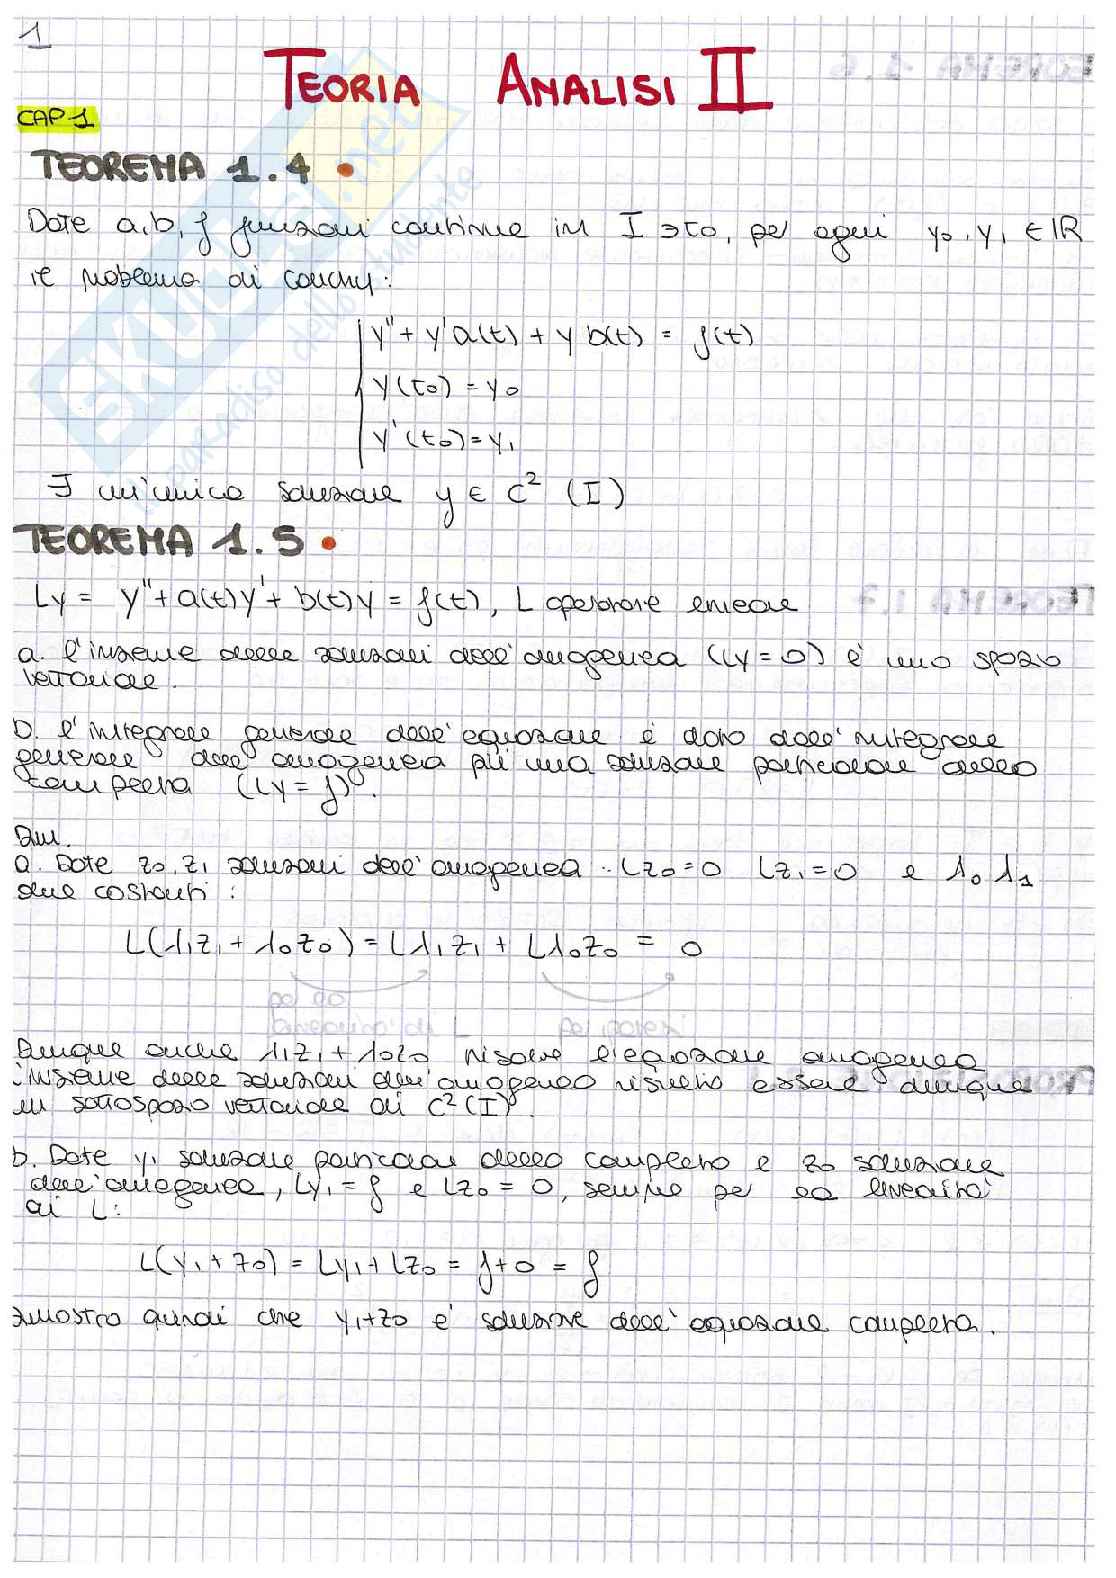 1
TEORIA ANALISI II
CAP 1
TEOREMA 1.4 •
Date a, b, f funzioni continue in I ∋ t0, per ogni y0, y1 ∈ ℝ
il problema di Cauchy:
y'' + y'a(t) + y b(t) = f(t)
y(t0) = y0
y'(t0) = y1
∃ un'unica soluzione y ∈ C² (I)
TEOREMA 1.5 •
Ly = y'' + a(t)y' + b(t)y = f(t), L operatore lineare
a. l'insieme delle soluzioni dell'omogenea (Ly = 0) è uno spazio
vettoriale.
b. l'integrale generale dell'equazione è dato dall'integrale
generale dell'omogenea più una soluzione particolare della
completa (Ly = f).
Dim.
a. Date z0, z1 soluzioni dell'omogenea: Lz0 = 0 Lz1 = 0 e λ0 λ1
due costanti:
L(λ1z1 + λ0z0) = Lλ1z1 + Lλ0z0 = 0
per la
linearità di L per ipotesi
Dunque anche λ1z1 + λ0z0 risolve l'equazione omogenea
insieme delle soluzioni dell'omogenea risulta essere dunque
un sottospazio vettoriale di C²(I).
b. Date y1 soluzione particolare della completa e z0 soluzione
dell'omogenea, Ly1 = f e Lz0 = 0, sempre per la linearità
di L:
L(y1 + z0) = Ly1 + Lz0 = f + 0 = f
dimostro quindi che y1+z0 è soluzione dell'equazione completa.
SKUOLA.net
il paradiso dello studente